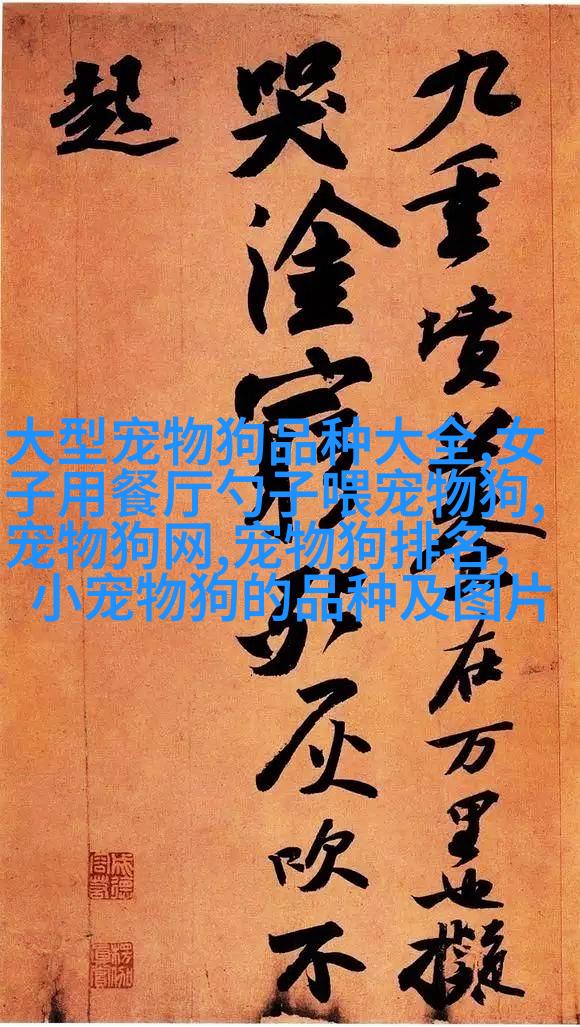 九重墳墓在万里也擬
哭塗窮死灰吹不
起
大型宠物狗品种大全,女
子用餐厅勺子喂宠物狗,
宠物狗网,宠物狗排名,
小宠物狗的品种及图片
成德
容若
楞伽
真賞